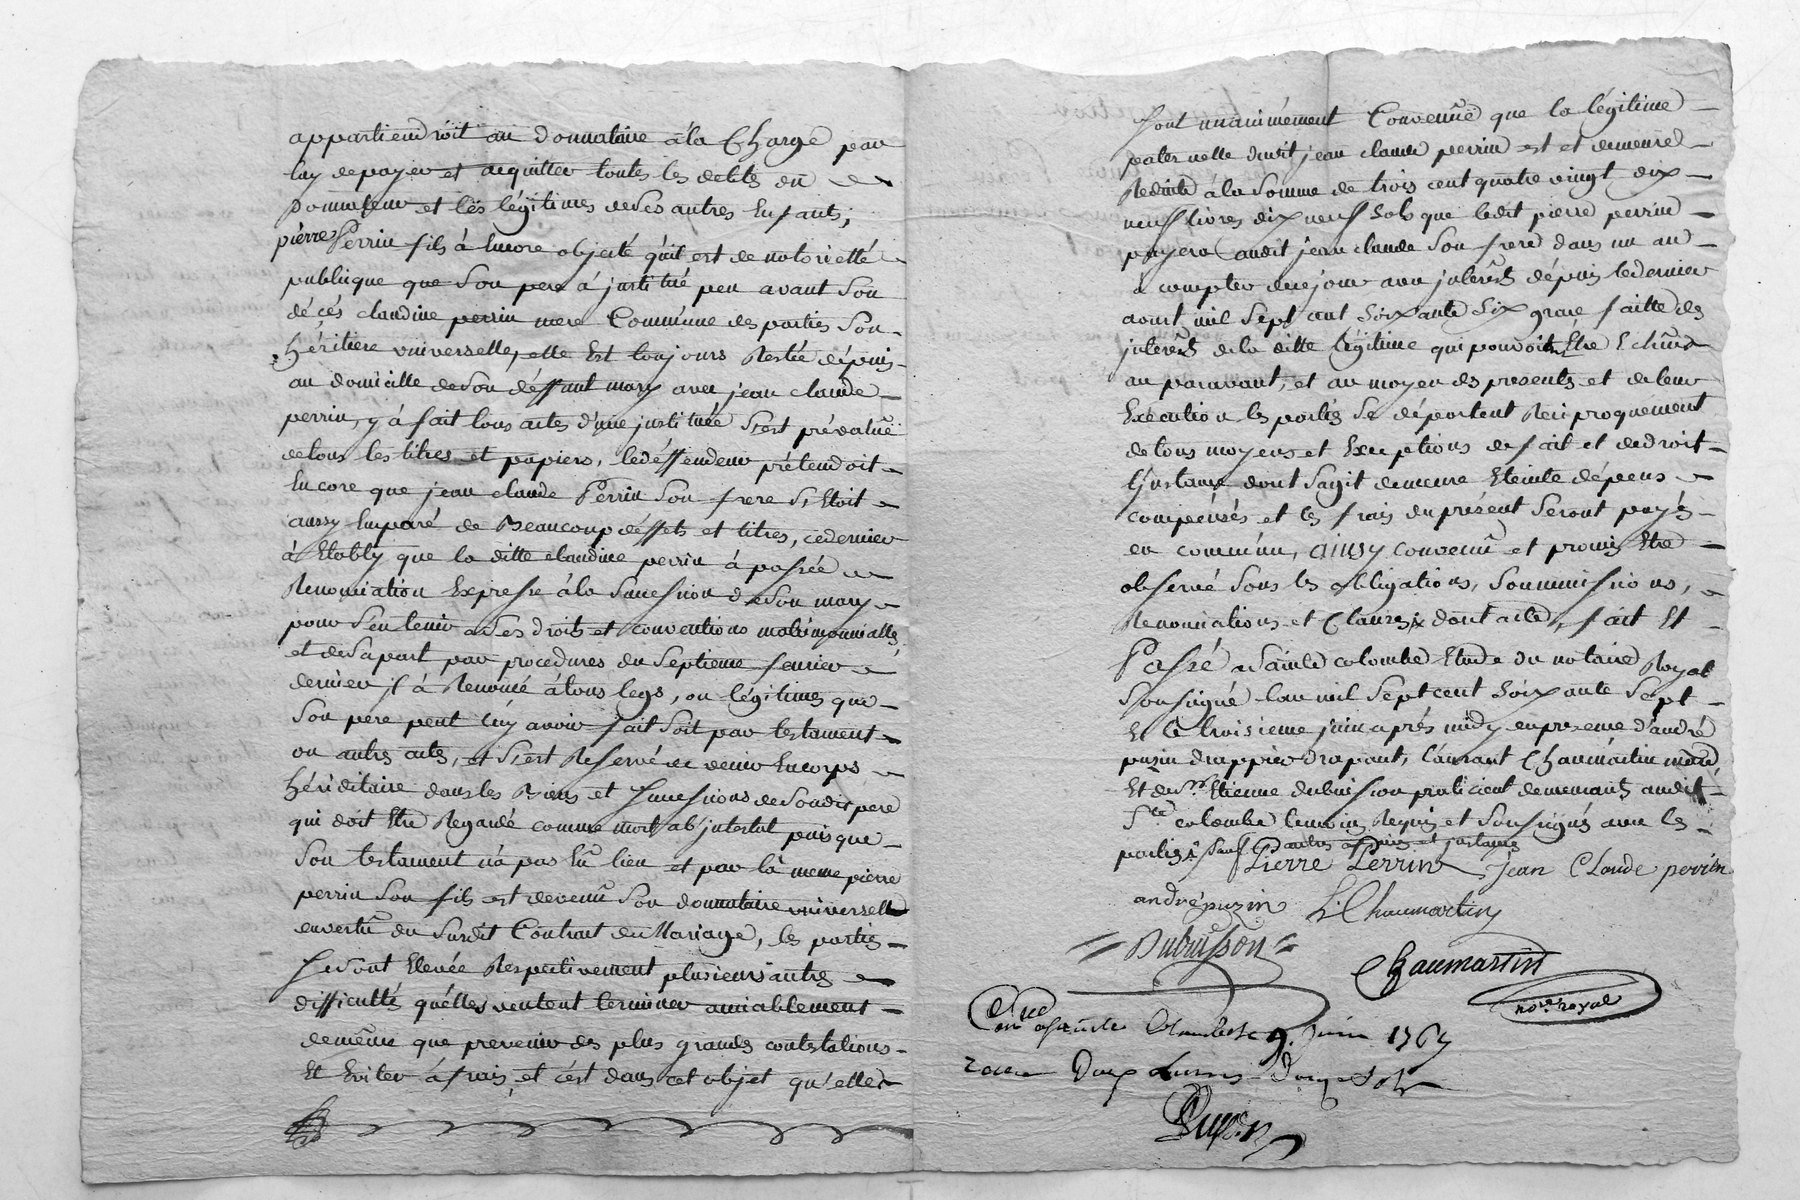 appartiendroit au donnataire à la Charge par
luy de payer et acquitter toutes les dettes du
Donnateur et les légitimes de ses autres Enfants,
pièrre Perrin fils à Encore objecté qu'il est de notorietté
publique que Son pere à jnstitué peu avant Son
décés claudine perrin mere Commune des parties Son
héritiere universelle, elle Est toujours Restée dépuis
au domicille de Son déffunt mary avec jean claude
perrin, y à fait tous actes d'une jnstituée S'est prévaluë
de tous les titres et papiers, le déffendeur prétendoit
Encore que jean claude Perrin Son frere S'Etoit
aussy Emparé de Beaucoup d'éffets et titres, ce dernier
à Etably que la ditte claudine perrin à passée
Renonciation Expresse à la Succession de Son mary
pour S'en tenir a Ses droits et conventions matrimonialles,
et de Sa part par procedures du Septieme fevrier
dernier jl à Renoncé à tous legs, ou légitimes que
Son pere peut luy avoir fait Soit par testament
ou autres actes, et S'est Reservé de venir En corps
héréditaire dans les Biens et Successions de Sondit pere
qui doit Etre Regardé comme mort ab jntestat puisque
Son testament n'a pas Eû lieu et par là meme pierre
perrin Son fils est devenû Son donnataire universelle
en vertû du Susdit Contrat de Mariage, les parties
Se Sont Elevée Respectivement plusieurs autres
difficultés qu'elles veulent terminer amiablement
de même que prevenir des plus grandes contestations
Et Eviter à frais, et c'est dans cet objet qu'elles
Sont unanimément Convenuë que la légitime
paternelle dudit jean claude perrin est et demeure
Reduite à la Somme de trois cent quatre vingt dix
neuf livres dix neuf Sols que ledit pierre perrin
payera audit jean claude Son frere dans un an
a compter de ce jour avec jnterêts dépuis le dernier
aout mil Sept cent Soixante Six grace faitte des
jnterêts de la ditte légitime qui pouvoient Etre Echûs
au paravant, et au moyen des presentes et de leur
Execution les parties Se départent Reciproquement
de tous moyens et Exceptions de fait et de droit
l'jnstance dont S'agit demeure Eteinte dépens
compensés et les frais du présent Seront payés
en commun, ainsy convenû et promis Etre
observé Sous les obligations, Soummissions,
Renonciations et Clauses dont acte, fait Et
Passé a Sainte colombe Etude du notaire Royal
Soussigné l'an mil Sept cent Soixante Sept
Et le troisieme juin aprés midy en presence d'andré
puzin drappier drapant, Laurant Chaumartin
Et de Sr. Etienne dubuisson praticient demeurants audit
Ste colombe temoins Requis et Soussignés avec les
parties
Pierre Perrin Jean Claude perrin
andré puzin L. Chaumartin
Dubuisson
Chaumartin
nore. royal
9. juin 1767